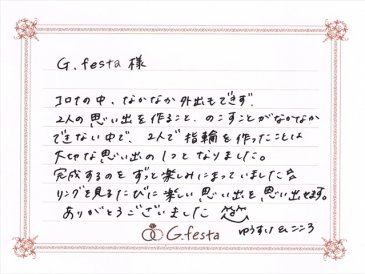 G.festa 様
コロナの中、なかなか外出もできず、
2人の思い出を作ること、のこすことがなかなか
できない中で、2人で指輪を作ったことは
大切な思い出の1つとなりました。
完成するのをずっと楽しみにまっていました
リングを見るたびに楽しい思い出を思い出せます。
ありがとうございました
G.festa
ゆうすけ & こころ